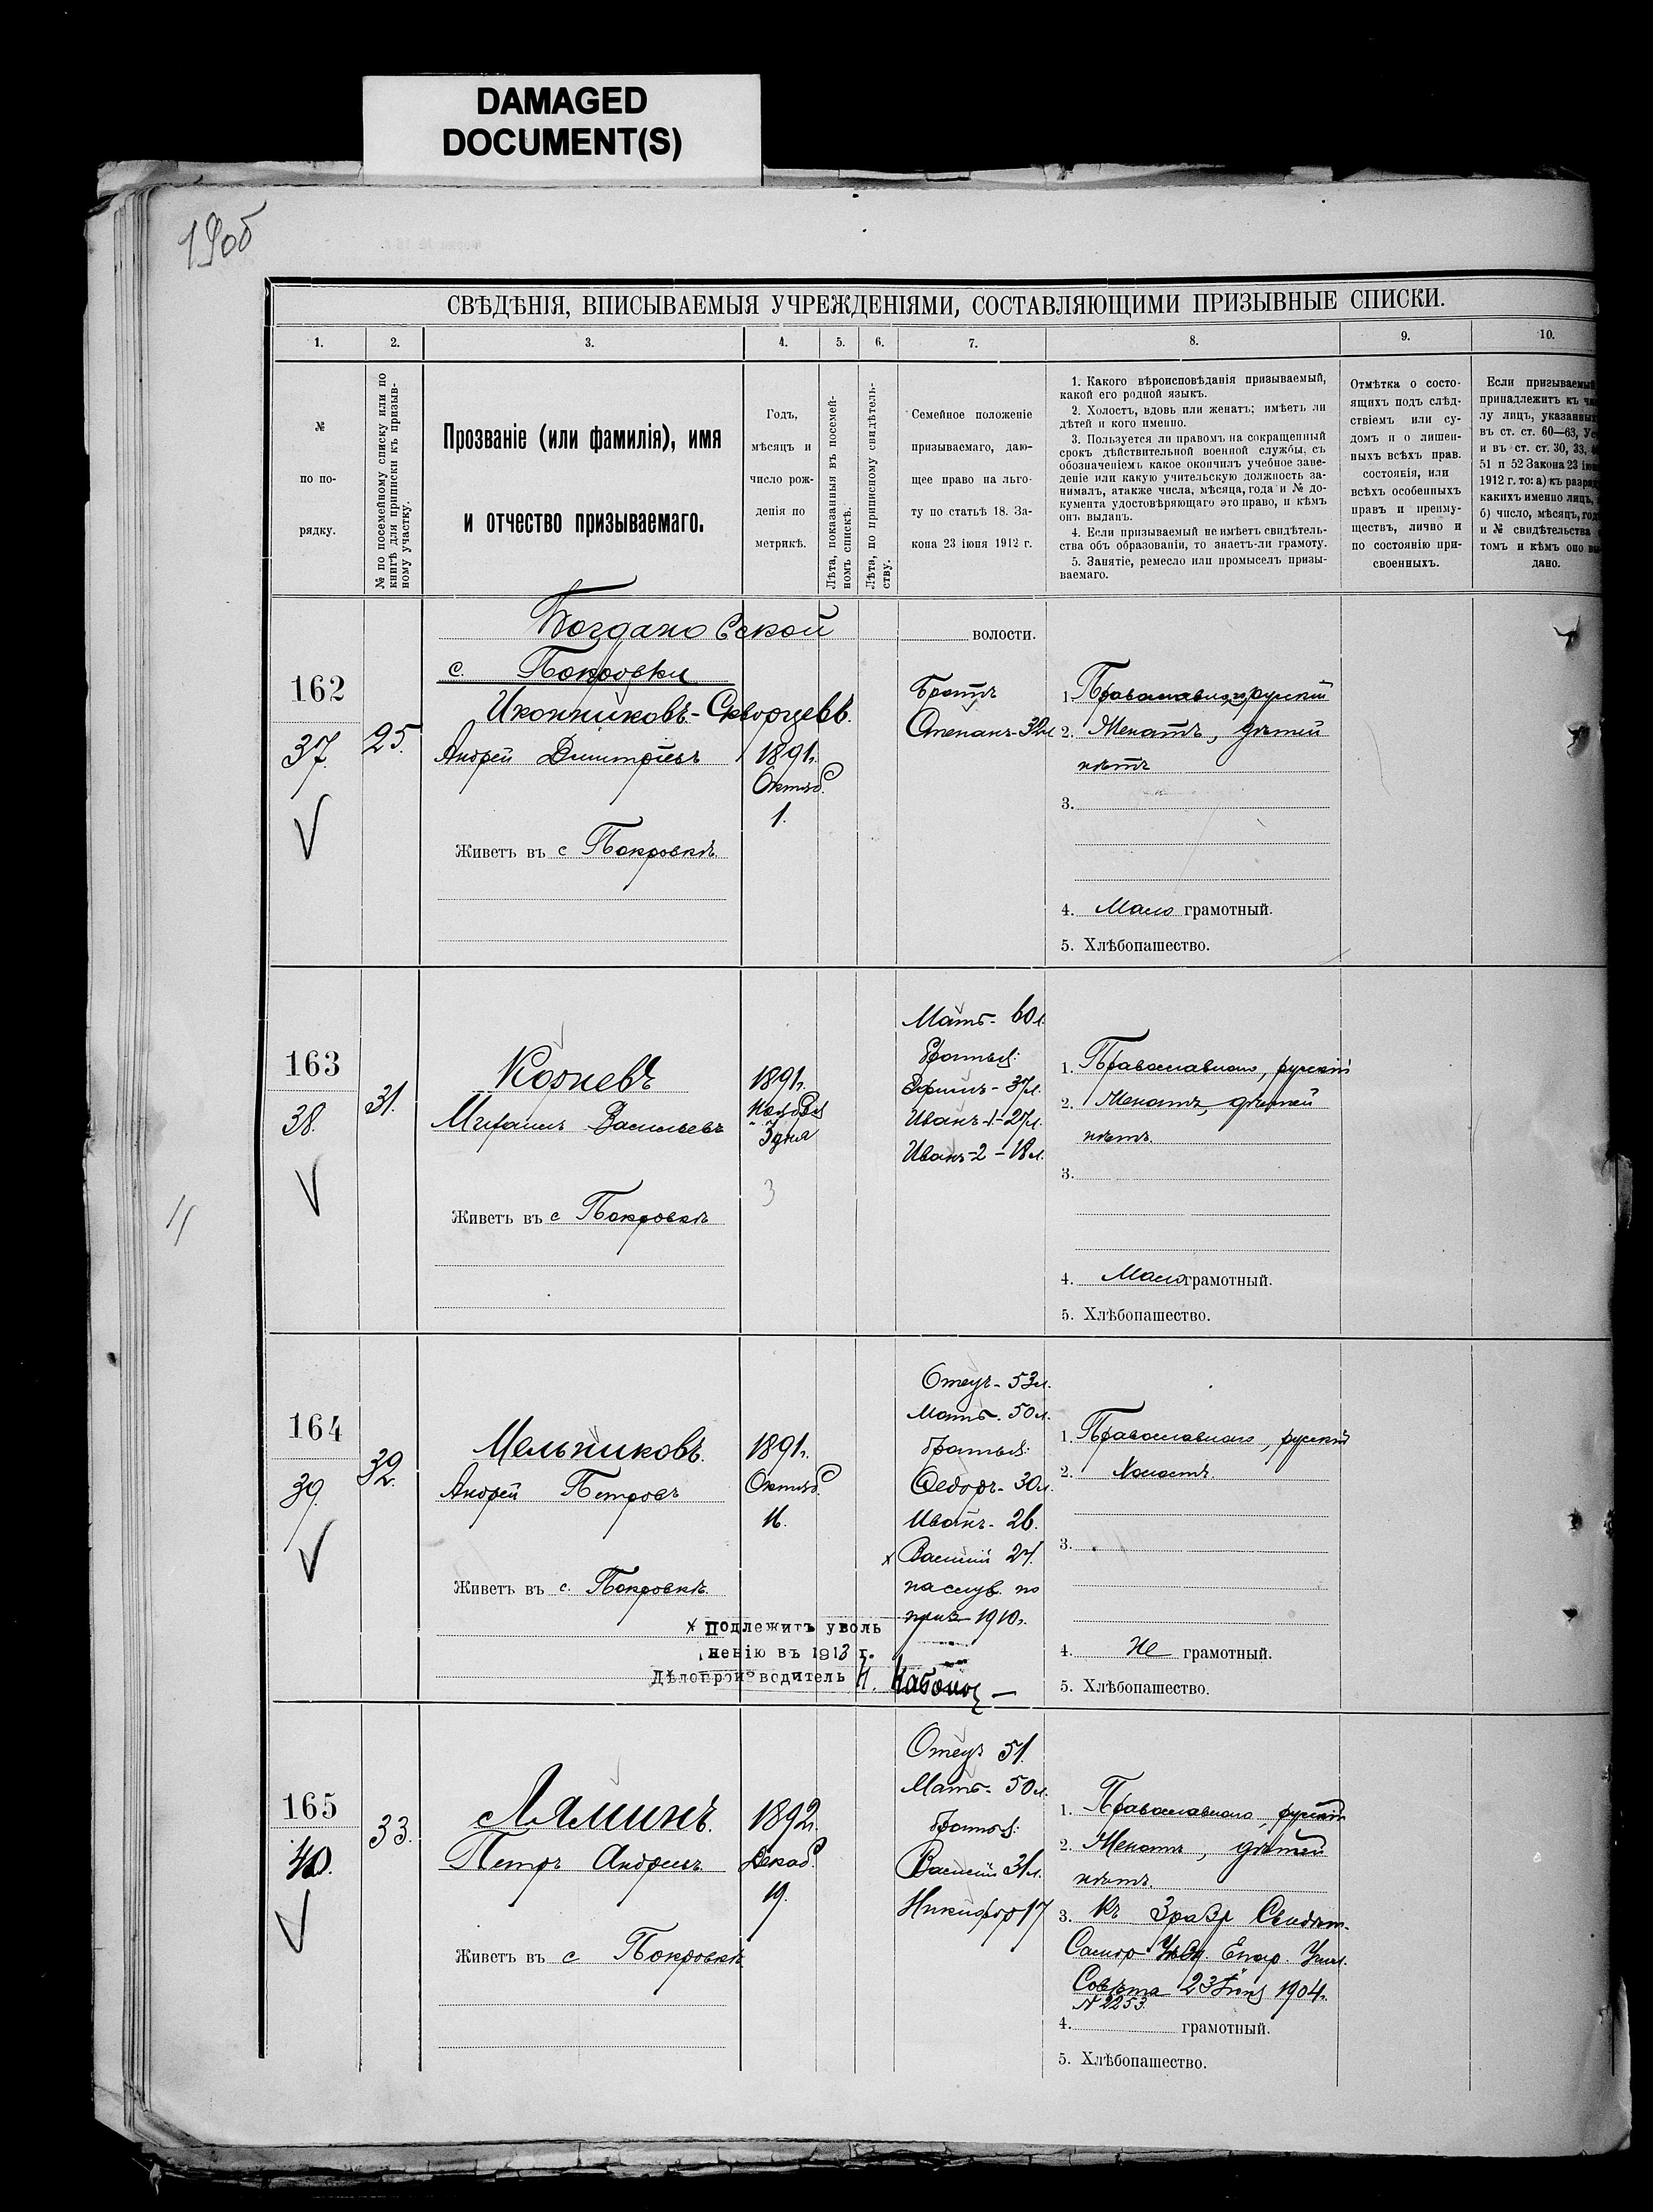 DAMAGED
DOCUMENT(S)
190б
СВѢДѢНІЯ, ВПИСЫВАЕМЫЯ УЧРЕЖДЕНІЯМИ, СОСТАВЛЯЮЩИМИ ПРИЗЫВНЫЕ СПИСКИ.
1. 2. 3. 4. 5. 6. 7. 8. 9. 10.
№
по по-
рядку.
№ по посемейному списку или по
книгѣ для приписки къ призыв-
ному участку.
Прозваніе (или фамилія), имя
и отчество призываемаго.
Годъ,
мѣсяцъ и
число рож-
денія по
метрикѣ.
Лѣта, показанныя въ посемей-
номъ спискѣ.
Лѣта, по приписному свидѣтель-
ству.
Семейное положеніе
призываемаго, даю-
щее право на льго-
ту по статьѣ 18. За-
кона 23 іюня 1912 г.
1. Какого вѣроисповѣданія призываемый,
какой его родной языкъ.
2. Холостъ, вдовъ или женатъ; имѣетъ ли
дѣтей и кого именно.
3. Пользуется ли правомъ на сокращенный
срокъ дѣйствительной военной службы, съ
обозначеніемъ какое окончилъ учебное заве-
деніе или какую учительскую должность за-
нималъ, атакже числа, мѣсяца, года и № до-
кумента удостовѣряющаго это право, и кѣмъ
онъ выданъ.
4. Если призываемый не имѣетъ свидѣтель-
ства объ образованіи, то знаетъ-ли грамоту.
5. Занятіе, ремесло или промыселъ призы-
ваемаго.
Отмѣтка о состо-
ящихъ подъ слѣд-
ствіемъ или су-
домъ и о лишен-
ныхъ всѣхъ прав.
состоянія, или
всѣхъ особенныхъ
правъ и преиму-
ществъ, лично и
по состоянію при-
своенныхъ.
Если призываемый
принадлежитъ къ
лу лицъ, указанныхъ
въ ст. ст. 60—63,
и въ ст. ст. 30, 33,
51 и 52 Закона 23
1912 г. то: а) къ
какихъ именно лицъ,
б) число, мѣсяцъ,
и № свидѣтельства
томъ и кѣмъ оно
дано.
Богдановской волости.
с. Покровки
162
37.
25.
Иконниковъ-Скворцевъ.
Андрей Димитріевъ
1891г.
Октяб.
1.
Живетъ въ с Покровкѣ
Братъ
Степанъ-32л
1. Православнаго, русскій
2. Женатъ, дѣтей
нѣтъ
3.
4. Мало грамотный.
5. Хлѣбопашество.
163
38.
31.
Козневъ
Михаилъ Васильевъ
1891г.
Ноября
3 дня
3
Живетъ въ с Покровкѣ
Мать- 60л.
братья:
Ефимъ- 37л.
Иванъ-1-27л.
Иванъ-2-18л.
1. Православнаго, русскій
2. Женатъ, дѣтей
нѣтъ.
3.
4. Мало грамотный.
5. Хлѣбопашество.
164
39.
32.
Мельниковъ.
Андрей Петровъ
1891г.
Октяб.
16.
Живетъ въ с. Покровкѣ.
Отецъ- 53л.
Мать- 50л.
братья:
Ѳедоръ- 30л.
Иванъ- 26.
х Василій 24.
на служ. по
приз 1910г.
х Подлежитъ уволь
ненію въ 1913 г.
Дѣлопроизводитель Н.
1. Православнаго, русскій
2. Холостъ
3.
4. Не грамотный.
5. Хлѣбопашество.
165
40.
33.
Ляминъ.
Петръ Андреевъ
1892г.
Декаб.
19.
Живетъ въ с Покровкѣ
Отецъ 51.
Мать- 50л.
братья:
Василій 31л.
Никифор 17
1. Православнаго, русскій
2. Женатъ, дѣтей
нѣтъ.
3. Къ 3 разр Свидѣт.
Самар Уѣзд. Епар. Учил.
Совѣта 23 Іюня 1904г.
№ 2253
4. грамотный.
5. Хлѣбопашество.